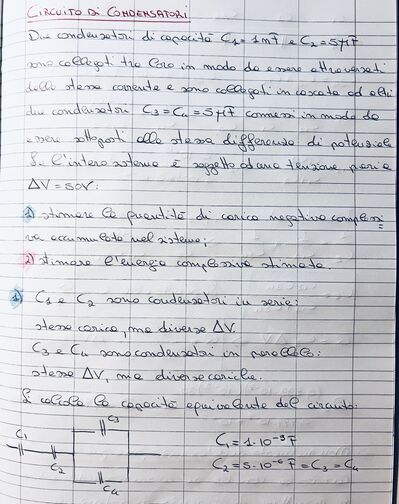 CIRCUITO DI CONDENSATORI
Due condensatori di capacità C₁=1mF e C₂=5μF
sono collegati tra loro in modo da essere attraversati
dalla stessa corrente e sono collegati in cascata ad altri
due condensatori C₃=C₄=5μF connessi in modo da
essere sottoposti alla stessa differenza di potenziale
Se l'intero sistema è soggetto ad una tensione pari a
ΔV=50V:
1) stimare la quantità di carica negativa complessi
va accumulata nel sistema;
2) stimare l'energia complessiva stimata.
1) C₁ e C₂ sono condensatori in serie:
stessa carica, ma diversa ΔV.
C₃ e C₄ sono condensatori in parallelo:
stessa ΔV, ma diverse cariche.
Si calcola la capacità equivalente del circuito:
C₃
C₁
C₂
C₄
C₁=1·10⁻³F
C₂=5·10⁻⁶F=C₃=C₄